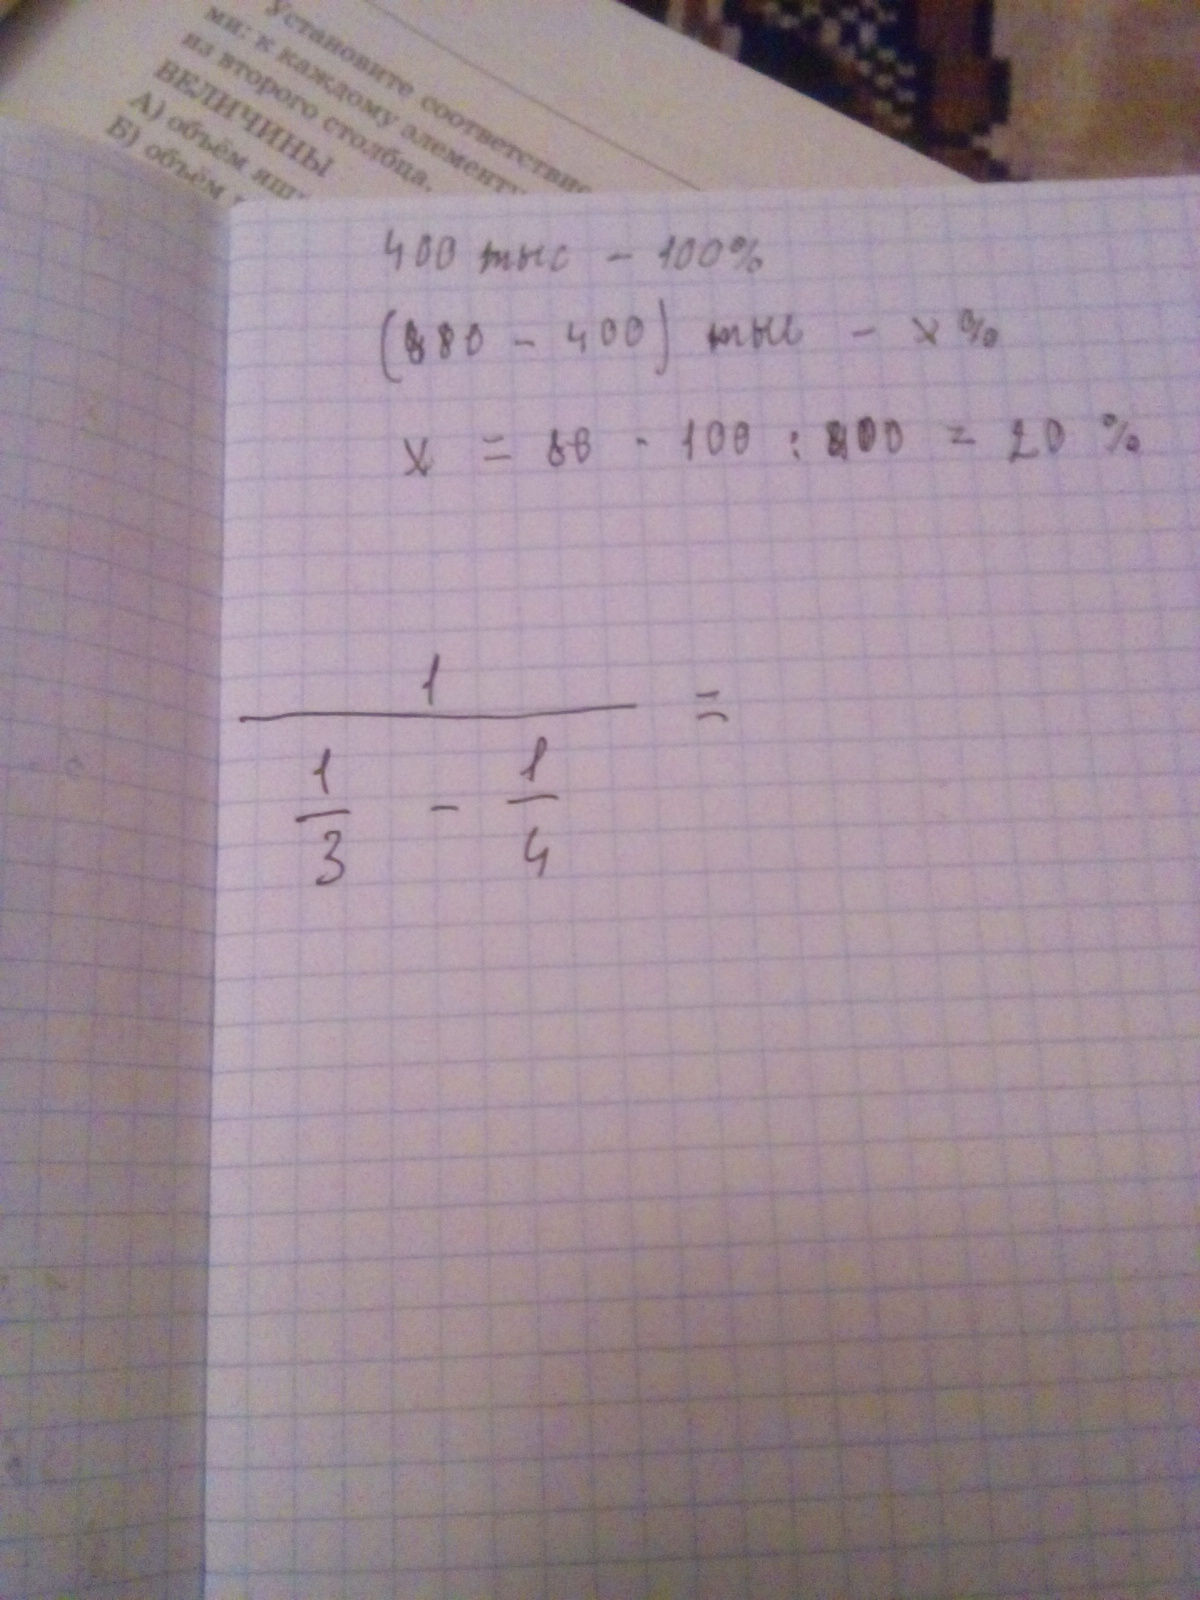 Установите соответствие
ми: к каждому элементу
из второго столбца.
ВЕЛИЧИНЫ
А) объём ящи
Б) объём
400 тыс - 100%
(480 - 400) тыс - x%
x = 80 · 100 : 400 = 20 %
1
=
1
3
-
1
4